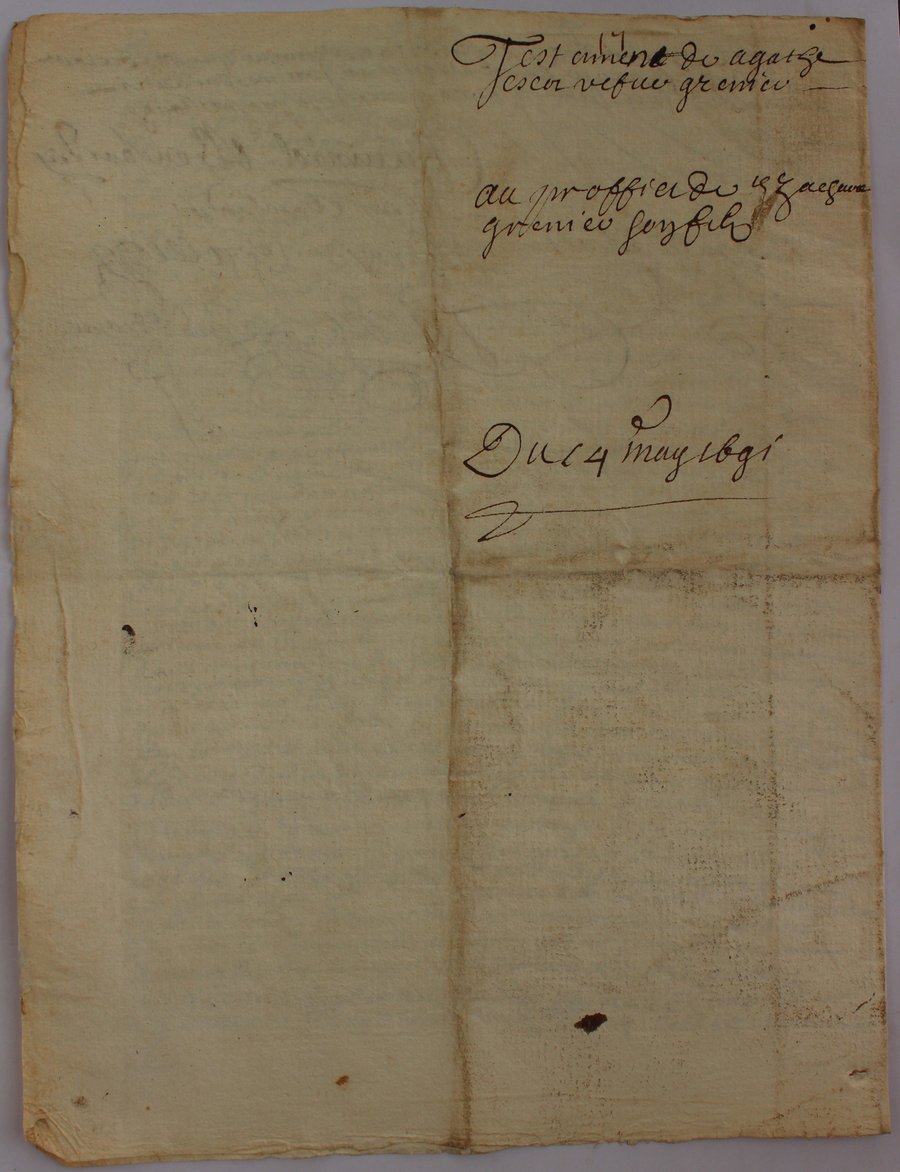 Testament de agathe
vefue grenier
au proffict de
grenier son filz
Du 14 may 1691